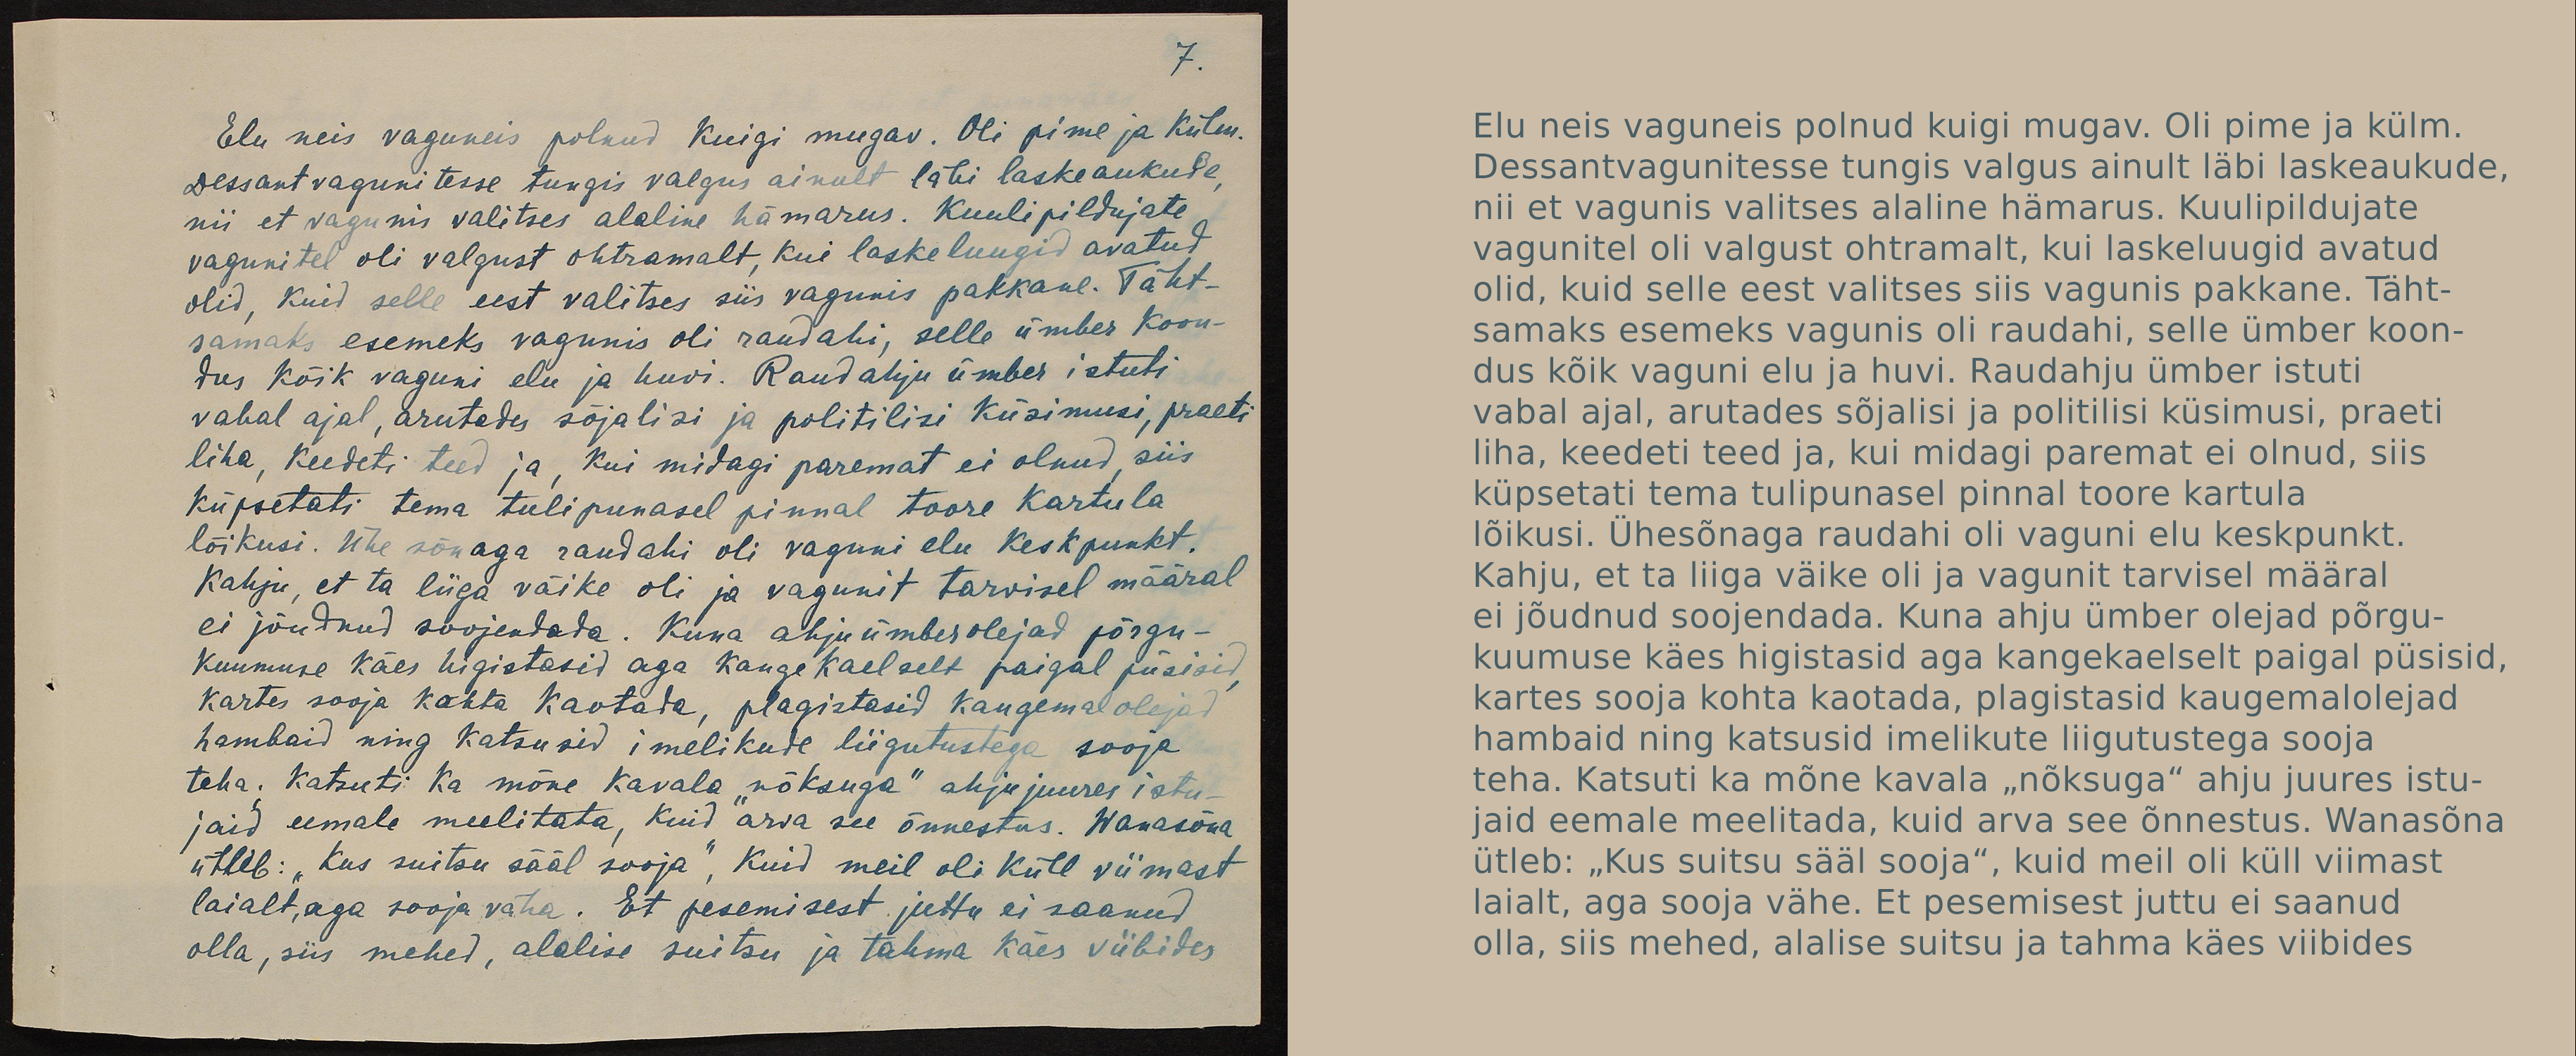 7.
Elu neis vaguneis polnud kuigi mugav. Oli pime ja külm.
Dessantvagunitesse tungis valgus ainult läbi laskeaukude,
nii et vagunis valitses alaline hämarus. Kuulipildujate
vagunitel oli valgust ohtramalt, kui laskeluugid avatud
olid, kuid selle eest valitses siis vagunis pakkane. Täht-
samaks esemeks vagunis oli raudahi, selle ümber koon-
dus kõik vaguni elu ja huvi. Raudahju ümber istuti
vabal ajal, arutades sõjalisi ja politilisi küsimusi, praeti
liha, keedeti teed ja, kui midagi paremat ei olnud, siis
küpsetati tema tulipunasel pinnal toore kartula
lõikusi. Ühe sõnaga raudahi oli vaguni elu keskpunkt.
Kahju, et ta liiga väike oli ja vagunit tarvisel määral
ei jõudnud soojendada. Kuna ahju ümber olejad põrgu-
kuumuse käes higistasid aga kangekaelselt paigal püsisid,
kartes sooja kohta kaotada, plagistasid kaugemalolejad
hambaid ning katsusid imelikude liigutustega sooja
teha. Katsuti ka mõne kavala „nõksuga" ahju juures istu-
jaid eemale meelitata, kuid arva see õnnestus. Wanasõna
ütleb: „Kus suitsu sääl sooja", kuid meil oli küll viimast
laialt, aga sooja vähe. Et pesemisest juttu ei saanud
olla, siis mehed, alalise suitsu ja tahma käes viibides
Elu neis vaguneis polnud kuigi mugav. Oli pime ja külm.
Dessantvagunitesse tungis valgus ainult läbi laskeaukude,
nii et vagunis valitses alaline hämarus. Kuulipildujate
vagunitel oli valgust ohtramalt, kui laskeluugid avatud
olid, kuid selle eest valitses siis vagunis pakkane. Täht-
samaks esemeks vagunis oli raudahi, selle ümber koon-
dus kõik vaguni elu ja huvi. Raudahju ümber istuti
vabal ajal, arutades sõjalisi ja politilisi küsimusi, praeti
liha, keedeti teed ja, kui midagi paremat ei olnud, siis
küpsetati tema tulipunasel pinnal toore kartula
lõikusi. Ühesõnaga raudahi oli vaguni elu keskpunkt.
Kahju, et ta liiga väike oli ja vagunit tarvisel määral
ei jõudnud soojendada. Kuna ahju ümber olejad põrgu-
kuumuse käes higistasid aga kangekaelselt paigal püsisid,
kartes sooja kohta kaotada, plagistasid kaugemalolejad
hambaid ning katsusid imelikute liigutustega sooja
teha. Katsuti ka mõne kavala „nõksuga“ ahju juures istu-
jaid eemale meelitada, kuid arva see õnnestus. Wanasõna
ütleb: „Kus suitsu sääl sooja“, kuid meil oli küll viimast
laialt, aga sooja vähe. Et pesemisest juttu ei saanud
olla, siis mehed, alalise suitsu ja tahma käes viibides